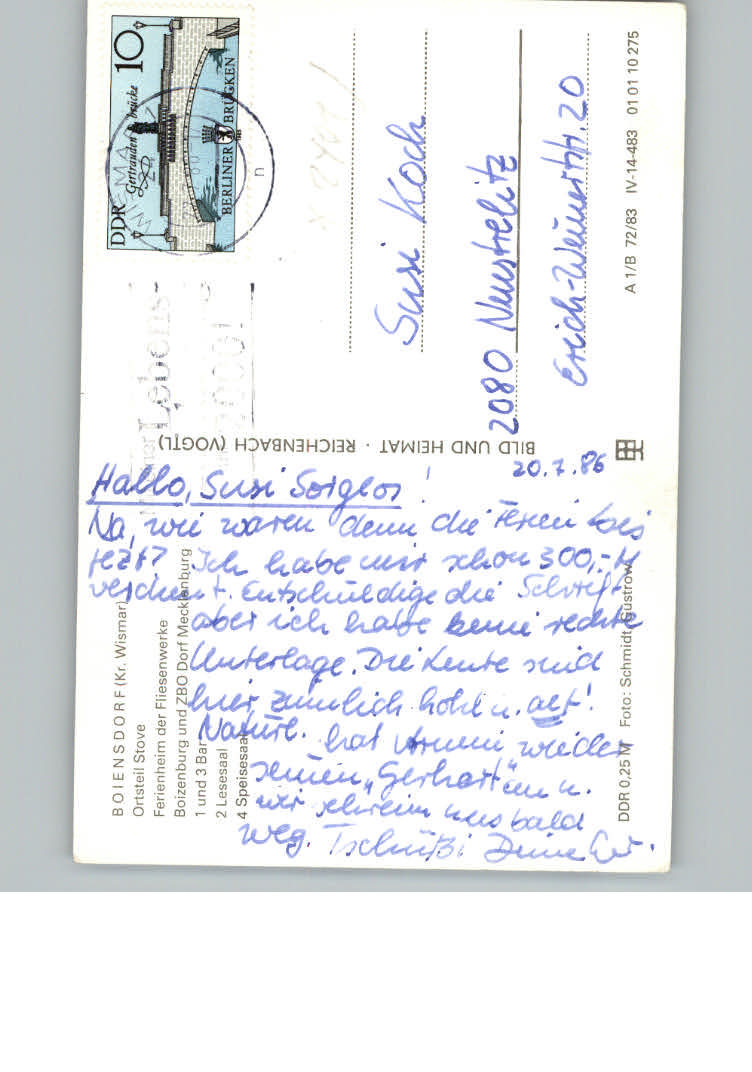 DDR
10
Gertraudenbrücke
BERLINER BRÜCKEN
Lebens
Susi Koch
2080 Neustrelitz
Erich-Weinertstr. 20
A 1/B 72/83 IV-14-483 01 01 10 275
BILD UND HEIMAT · REICHENBACH (VOGTL)
20.7.86
Hallo, Susi Sorglos!
Na, wie waren denn die Ferien bis
jetzt? Ich habe mir schon 300,-M
verdient. Entschuldige die Schrift
aber ich habe keine rechte
Unterlage. Die Leute sind
hier ziemlich hohl u. alt!
Natürl. hat wieder
seinen "Gerhart" u.
wir uns bald
weg. Tschüßi Deine
BOIENSDORF (Kr. Wismar)
Ortsteil Stove
Ferienheim der Fliesenwerke
Boizenburg und ZBO Dorf Mecklenburg
1 und 3 Bar
2 Lesesaal
4 Speisesaal
DDR 0,25 M Foto: Schmidt, Güstrow